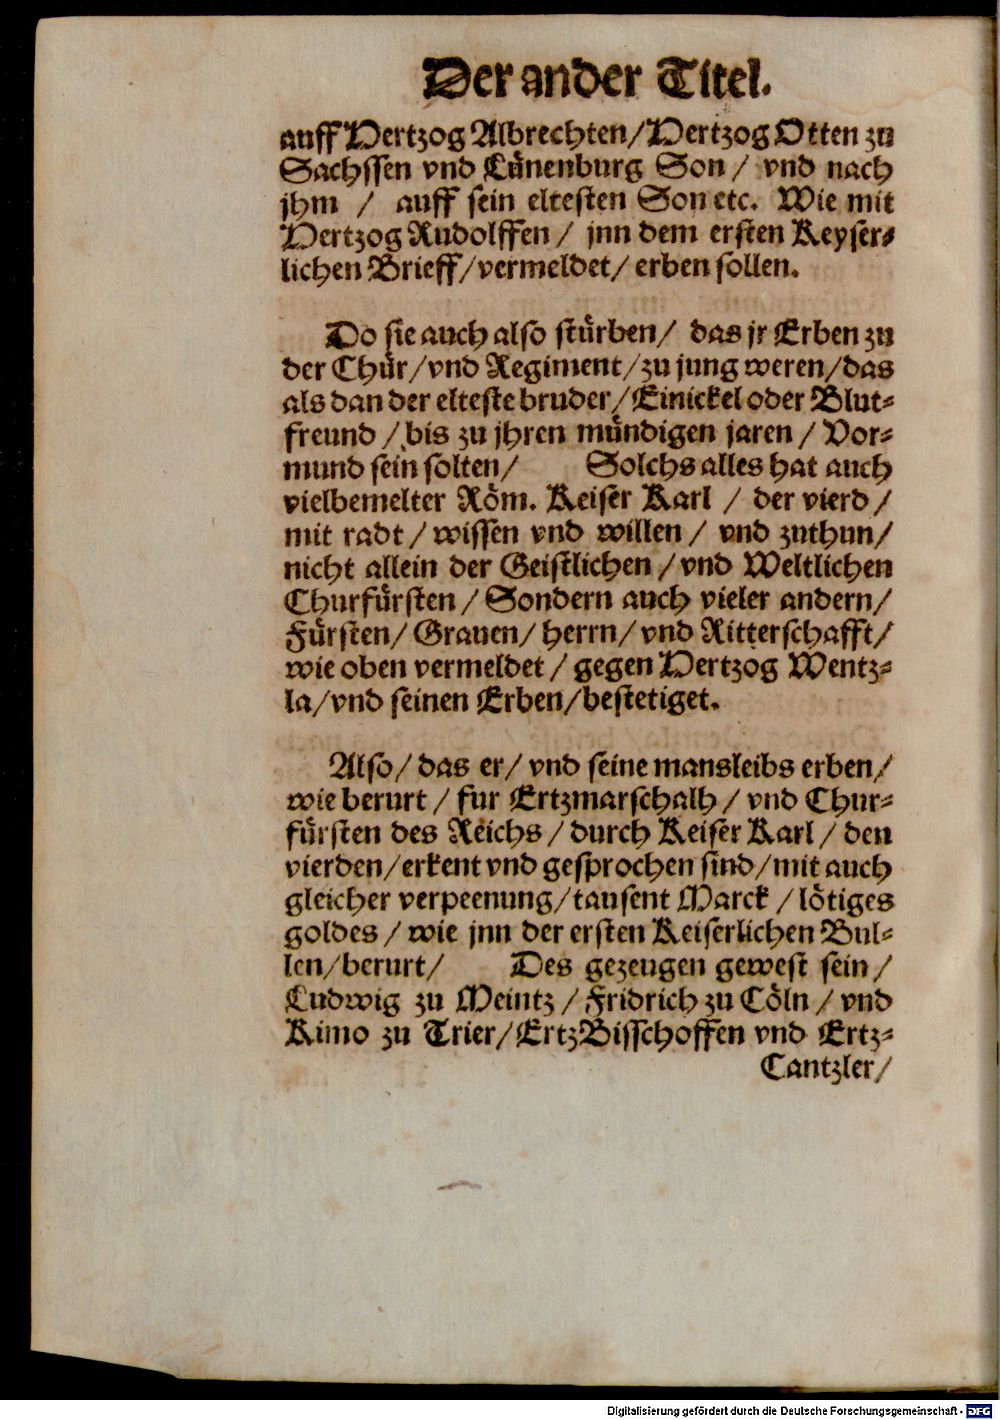 Der ander Titel.
auff Hertzog Albrechten/Hertzog Otten zu
Sachssen vnd Lünenburg Son / vnd nach
jhm / auff sein eltesten Son etc. Wie mit
Hertzog Rudolffen / jnn dem ersten Keyser-
lichen Brieff/vermeldet/ erben sollen.
Do sie auch also stürben/ das jr Erben zu
der Chür/vnd Regiment/zu jung weren/das
als dan der elteste bruder/Einickel oder Blut-
freund / bis zu jhren mündigen jaren / Vor-
mund sein solten/ Solchs alles hat auch
vielbemelter Röm. Keiser Karl / der vierd /
mit radt / wissen vnd willen / vnd zuthun/
nicht allein der Geistlichen /vnd Weltlichen
Churfürsten / Sondern auch vieler andern/
Fürsten/ Grauen/ herrn/ vnd Ritterschafft/
wie oben vermeldet / gegen Hertzog Wentz-
la/vnd seinen Erben/bestetiget.
Also/ das er/ vnd seine mansleibs erben/
wie berurt / fur Ertzmarschalh / vnd Chur-
fürsten des Reichs / durch Keiser Karl / den
vierden/erkent vnd gesprochen sind/mit auch
gleicher verpeenung/tausent Marck / lötiges
goldes / wie jnn der ersten Keiserlichen Bul-
len/berurt/ Des gezeugen gewest sein /
Ludwig zu Meintz / Fridrich zu Cöln / vnd
Kimo zu Trier/ErtzBisschoffen vnd Ertz-
Cantzler/
Digitalisierung gefördert durch die Deutsche Forschungsgemeinschaft - DFG